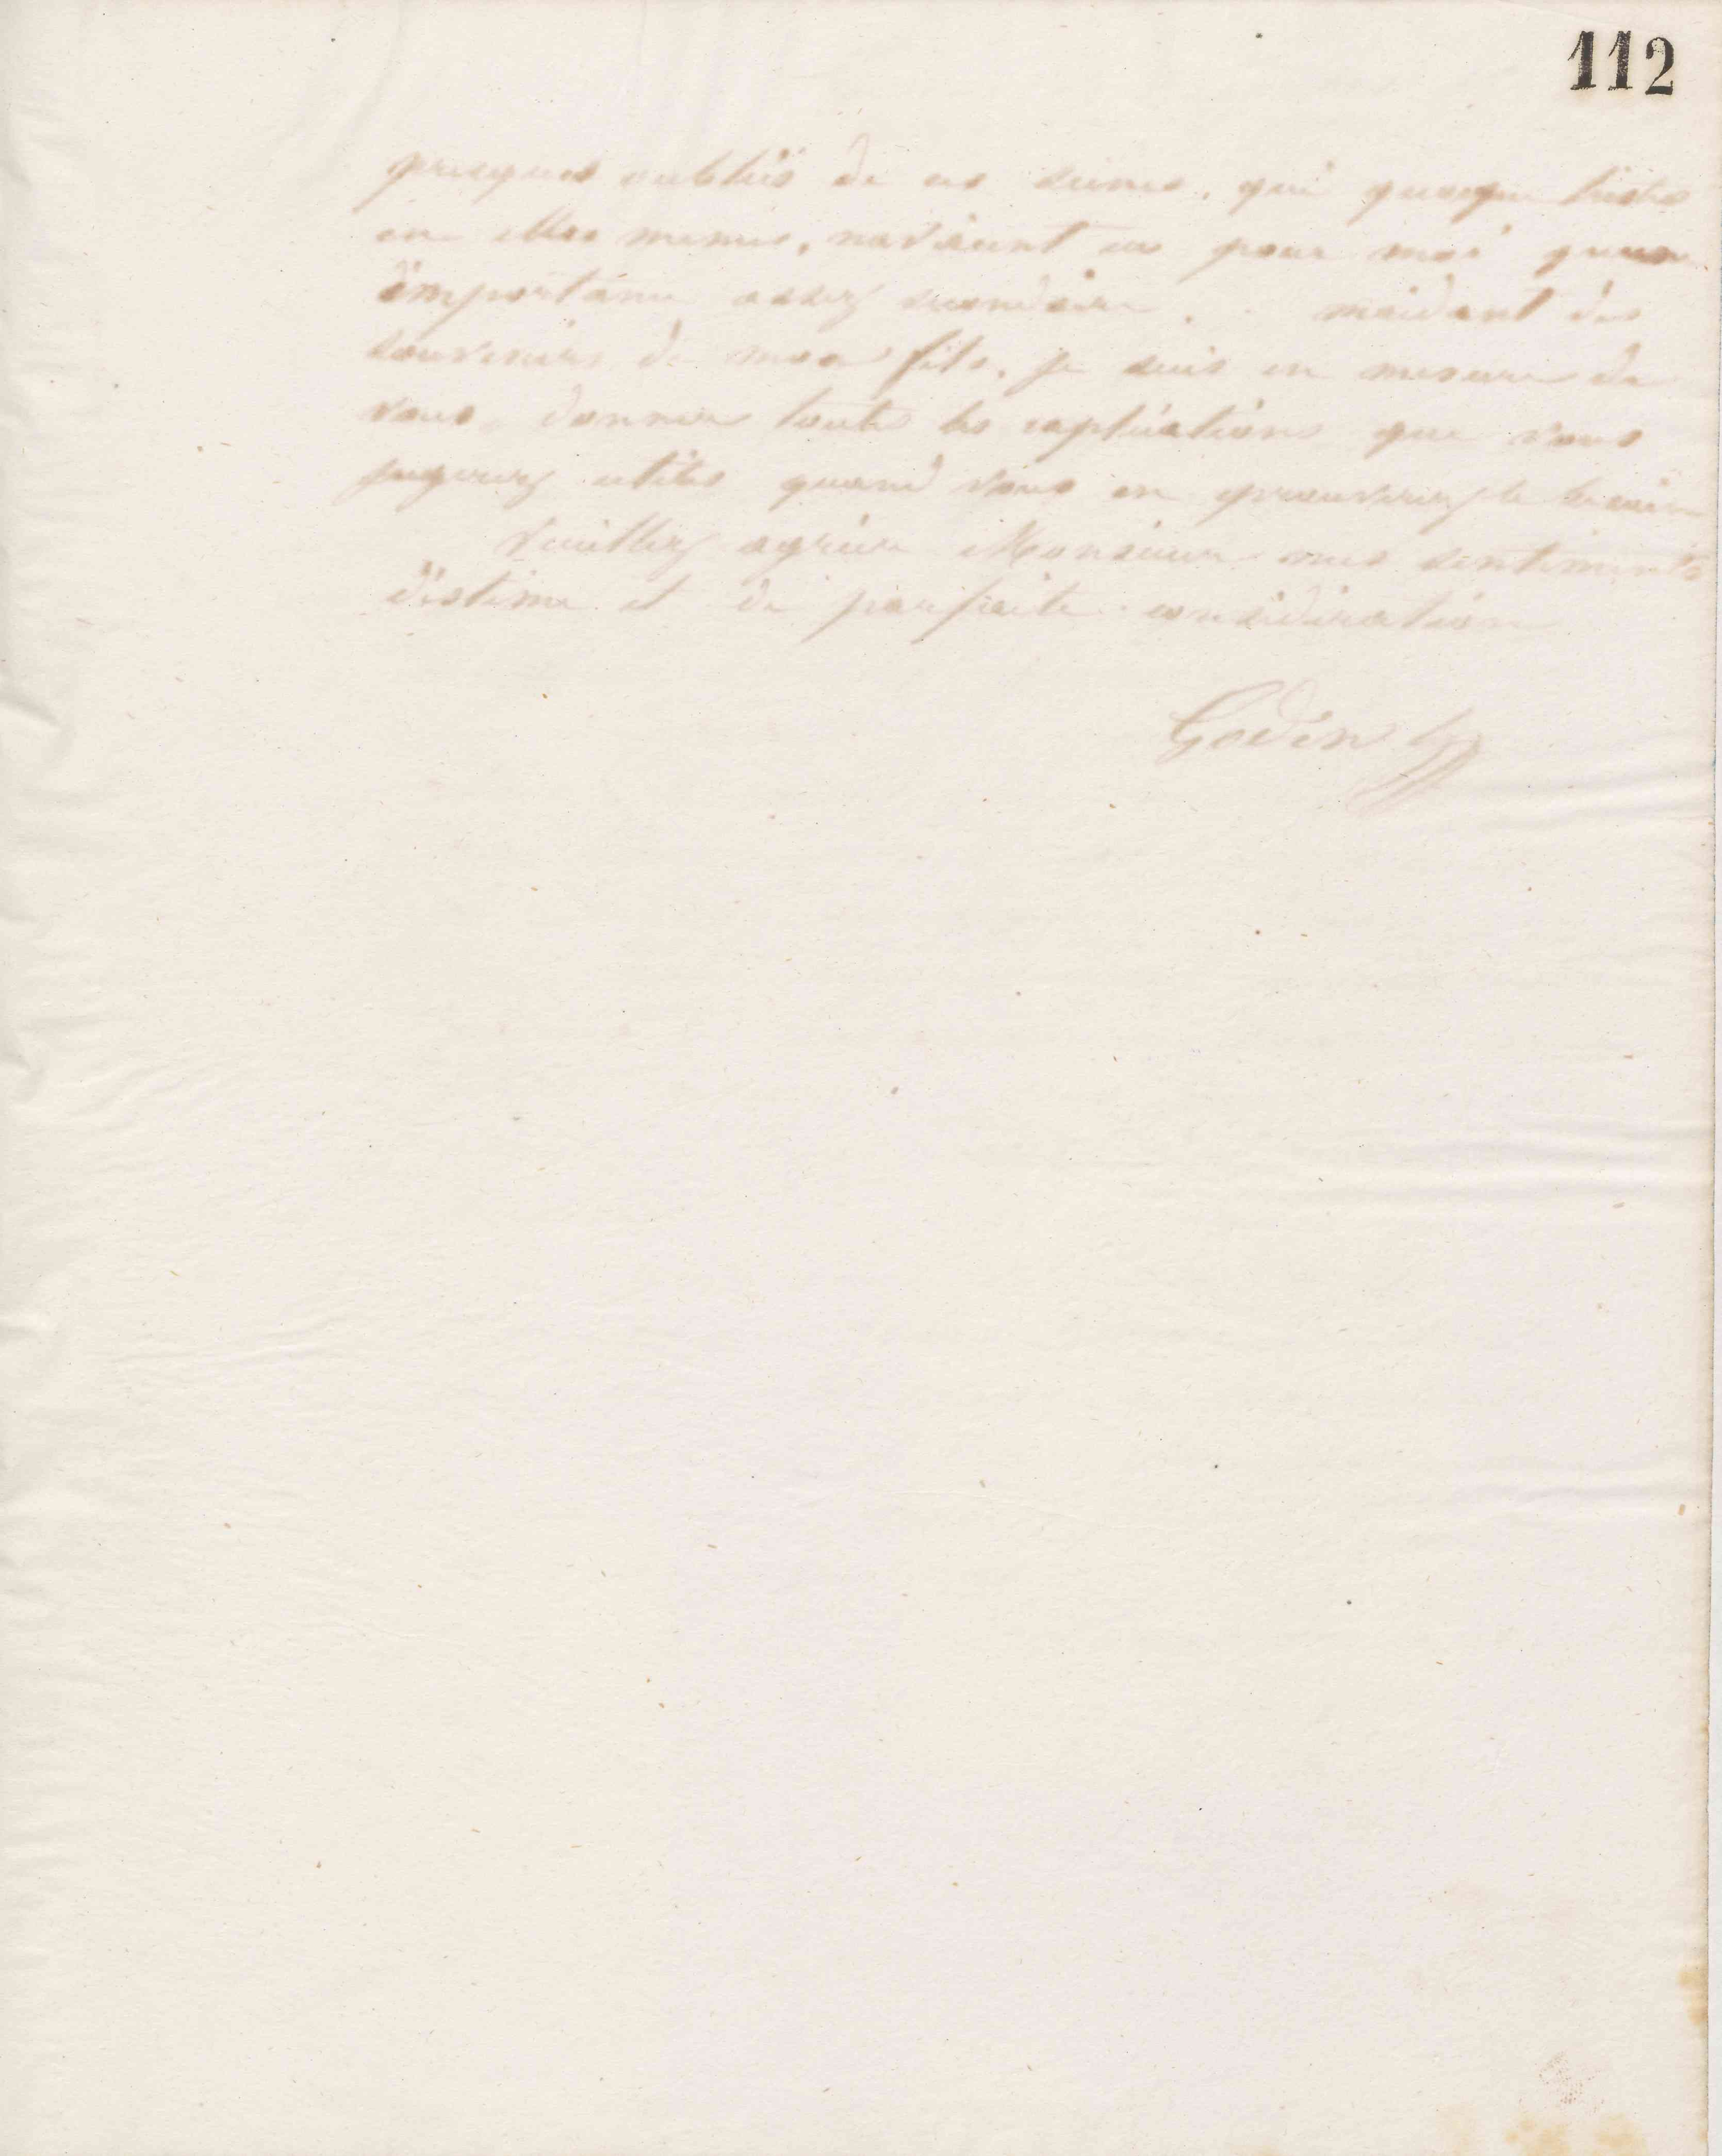 112
presques oubliés de ces scènes, qui quoique tristes
en elles mêmes, navaient eu pour moi quune
importance assez secondaire. maidant des
souvenirs de mon fils, je suis en mesure de
vous donner toutes les explications que vous
jugerez utiles quand vous en éprouverez le besoin
Veuillez agréer Monsieur mes sentiments
d'estime et de parfaite considération
Godin